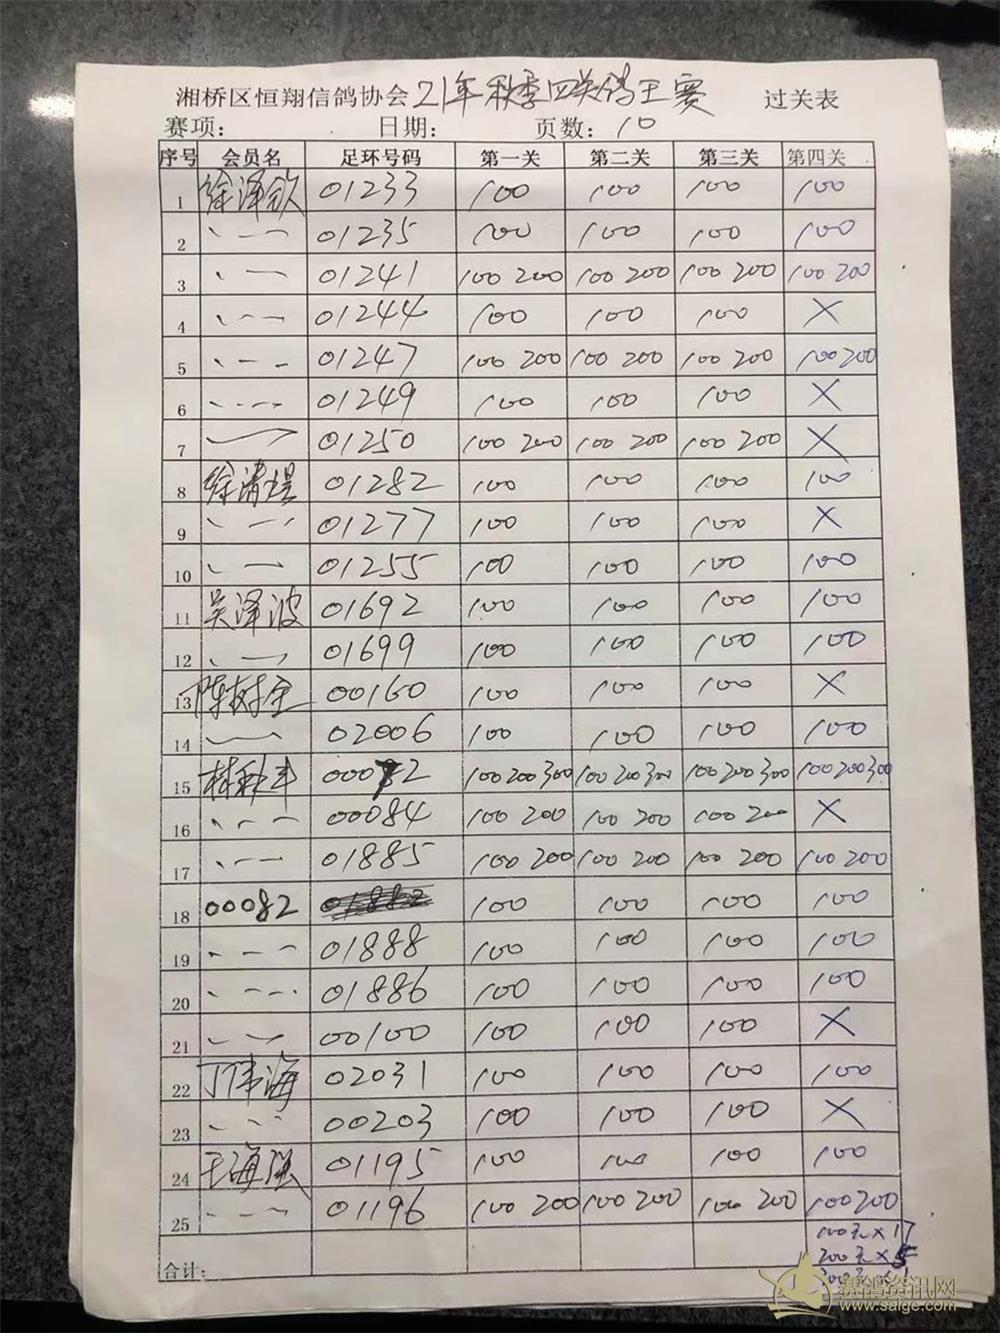 湘桥区恒翔信鸽协会21年秋季四关鸽王赛 过关表
赛项: 日期: 页数: 10
序号 会员名 足环号码 第一关 第二关 第三关 第四关
1 徐泽钦 01233 100 100 100 100
2 〃 01235 100 100 100 100
3 〃 01241 100 200 100 200 100 200 100 200
4 〃 01244 100 100 100 ×
5 〃 01247 100 200 100 200 100 200 100 200
6 〃 01249 100 100 100 ×
7 〃 01250 100 200 100 200 100 200 ×
8 徐清 01282 100 100 100 100
9 〃 01277 100 100 100 ×
10 〃 01255 100 100 100 100
11 吴泽波 01692 100 100 100 100
12 〃 01699 100 100 100 100
13 陈树全 00160 100 100 100 ×
14 〃 02006 100 100 100 100
15 林秋丰 100 200 300 100 200 300 100 200 300 100 200 300
16 〃 00084 100 200 100 200 100 200 ×
17 〃 01885 100 200 100 200 100 200 100 200
18 00082 100 100 100 100
19 〃 01888 100 100 100 100
20 〃 01886 100 100 100 100
21 〃 00100 100 100 100 ×
22 丁伟海 02031 100 100 100 100
23 〃 00203 100 100 100 ×
24 王海强 01195 100 100 100 100
25 〃 01196 100 200 100 200 100 200 100 200
100元×17
200元×5
合计:
赛鸽资讯网
www.saige.com